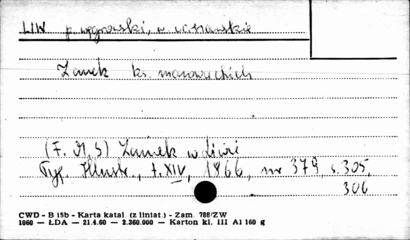 LIW p. węgrowski, w. warszawskie
Zamek ks. mazowieckich
(F. M. S) Zamek w Liwie
Tyg. Illustr., t. XIV, 1866, nr 379 s. 305,
306
CWD - B 15b - Karta katal. (z liniat.) - Zam. 788/ZW
1060 — ŁDA — 21.4.60 — 2.360.000 — Karton kl. III A1 160 g